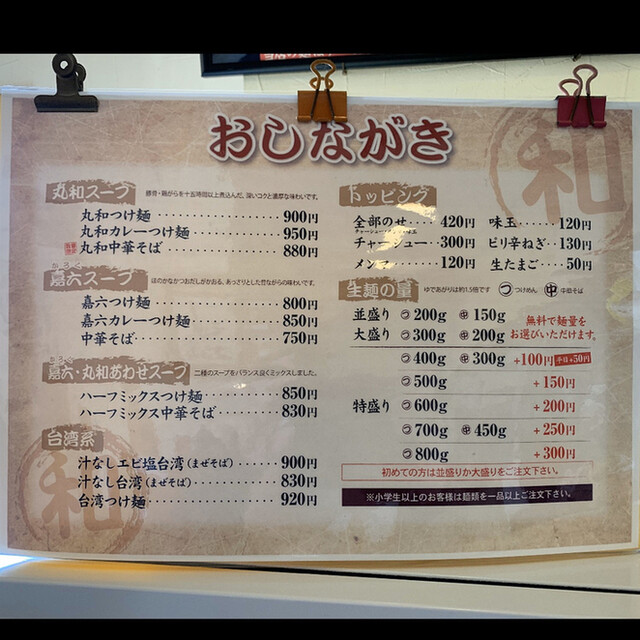 おしながき
丸和スープ
豚骨・鶏がらを十五時間以上煮込んだ、深いコクと濃厚な味わいです。
丸和つけ麺 900円
丸和カレーつけ麺 950円
丸和中華そば 880円
かろく
嘉六スープ
ほのかなかつおだしがかおる、あっさりとした昔ながらの味わいです。
嘉六つけ麺 800円
嘉六カレーつけ麺 850円
中華そば 750円
かろく
嘉六・丸和あわせスープ
二種のスープをバランス良くミックスしました。
ハーフミックスつけ麺 850円
ハーフミックス中華そば 830円
台湾系
汁なしエビ塩台湾(まぜそば) 900円
汁なし台湾(まぜそば) 830円
台湾つけ麺 920円
トッピング
全部のせ 420円
チャーシュー 300円
メンマ 120円
味玉 120円
ピリ辛ねぎ 130円
生たまご 50円
生麺の量
ゆであがりは約1.5倍です つ つけめん 中 中華そば
並盛り つ 200g 中 150g
大盛り つ 300g 中 200g
無料で麺量を
お選びいただけます。
つ 400g 中 300g +100円 平日+50円
つ 500g +150円
特盛り つ 600g +200円
つ 700g 中 450g +250円
つ 800g +300円
初めての方は並盛りか大盛りをご注文下さい。
※小学生以上のお客様は麺類を一品以上ご注文下さい。
和
和